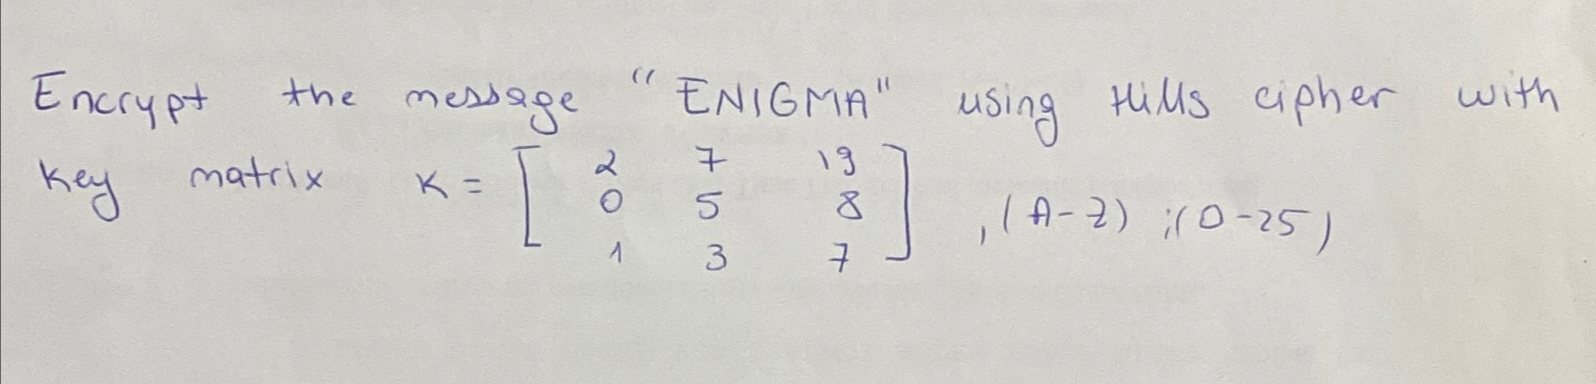 Encrypt the message "ENIGMA" using Hills cipher with
key matrix K = [ 2 7 19
0 5 8 ] , (A-Z) ; (0-25)
1 3 7